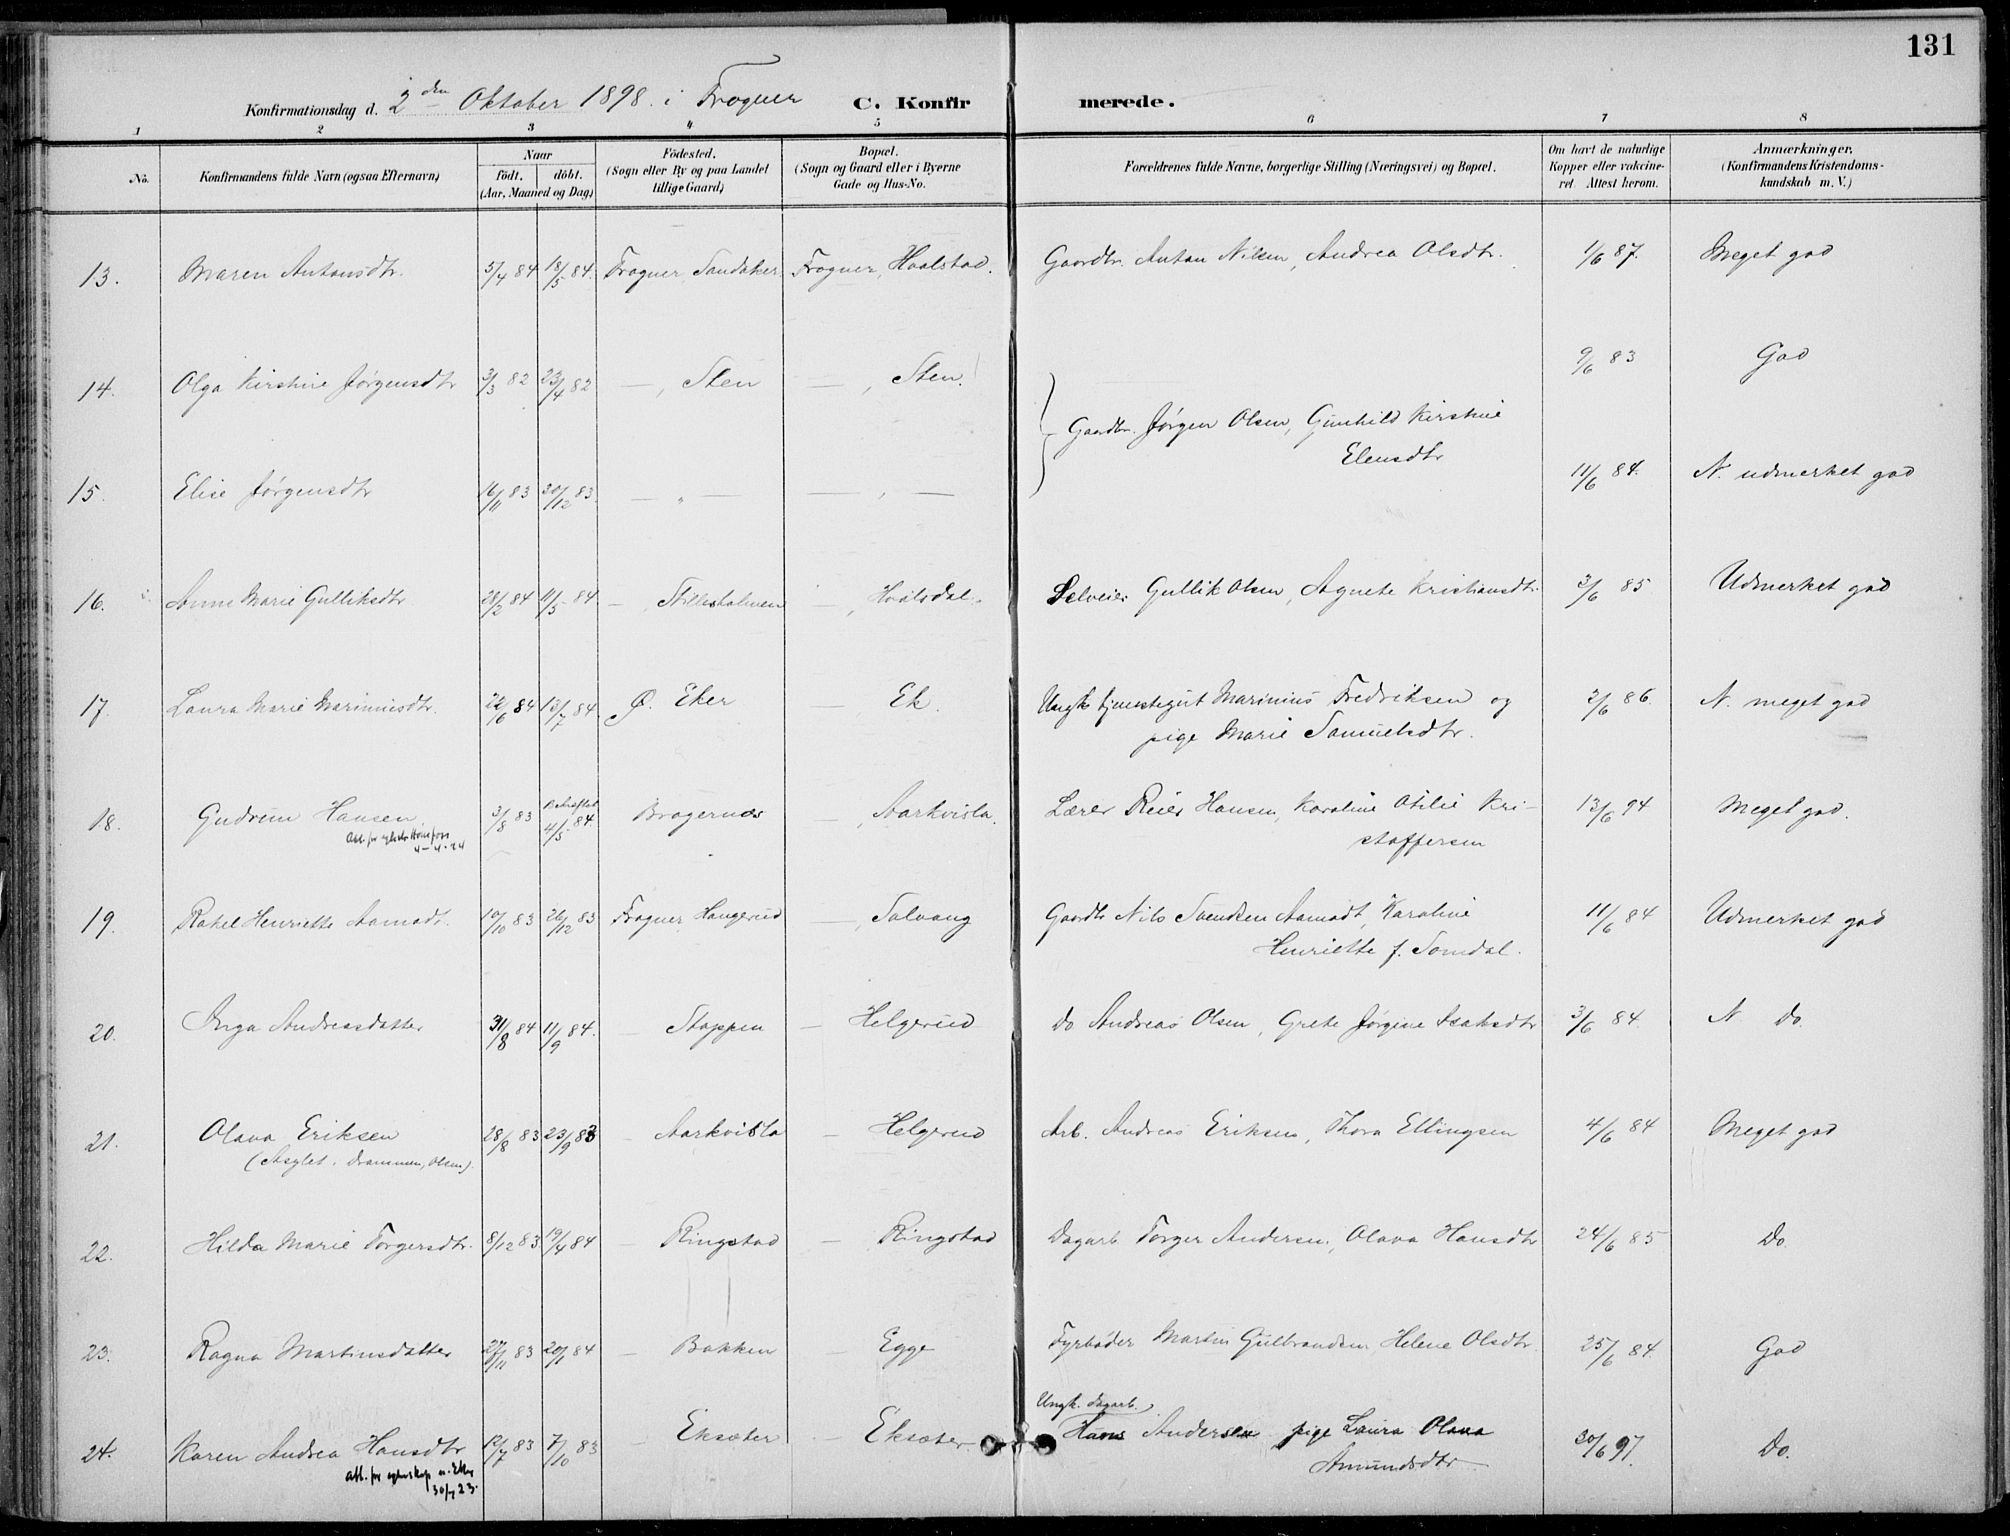 131
Konfirmationsdag d. 2den Oktober 1898. i Frogner C. Konfirmerede.
1 2 3 4 5 6 7 8
No. Konfirmandens fulde Navn (ogsaa Efternavn) Naar født. døbt. (Aar, Maaned og Dag) Födested. (Sogn eller By og paa Landet tillige Gaard) Bopæl. (Sogn og Gaard eller i Byerne Gade og Hus-No. Forældrenes fulde Navne, borgerlige Stilling (Næringsvei) og Bopæl. Om havt de naturlige Kopper eller vakcineret. Attest herom. Anmærkninger. (Konfirmandens Kristendomskundskab m. V.)
13. Maren Antonsdtr. 5/4 84 18/5 84. Frogner, Sandaker Frogner, Haalstad. Gaardbr. Anton Nilsen, Andrea Olsdtr. 1/6 87. Meget god
14. Olga Kirstine Jørgensdtr 3/3 82 23/4 82 —, Sten —, Sten. 9/6 83 God
Gaardbr. Jørgen Olsen, Gunhild Kirstine
Elensdtr
15. Elise Jørgensdtr 16/11 83 30/12 83. — " — — , — 11/6 84. N. udmerket god
16. Anne Marie Gulliksdtr 28/2 84 11/5 84 —, Stillesholmen —, Hvalsdal. Selveier Gullik Olsen, Agnete Kristiansdtr. 3/6 85 Udmerket god
17. Laura Marie Marinusdtr. 22/6 84 13/7 84. Ø. Eker — Ek. Ungk. tjenestegut Marinius Fredriksen og
pige Marie Samuelsdtr. 2/6 86. N. meget god
18. Gudrun Hansen 3/8 83 4/5 84. Bragernæs —, Aarkvisla. Lærer Reier Hansen, Karoline Otilie Kristoffersen 13/6 94 Meget god.
4-4-24
19. Rakel Henriette Aamodt. 10/10 83 26/12 83 Frogner, Haugerud —, Solvang Gaardb Nils Svendsen Aamodt, Karoline
Henriette f. Tomdal. 11/6 84 Udmerket god
20. Inga Andreasdatter 31/8 84 11/9 84. — Stoppen — Helgerud do Andreas Olsen, Grete Jørgine Isaksdtr 3/6 84. N do.
21. Olava Eriksen 28/8 83 23/9 83 — Aarkvisla — Helgerud Arb. Andreas Eriksen, Thora Ellingsen 4/6 84 Meget god
(Asylet i Drammen, Olsen).
22. Hilda Marie Torgersdtr. 8/12 83 19/4 84 — Ringstad — Ringstad Dagarb Torger Andersen, Olava Hansdtr 24/6 85 Do.
23. Ragna Martinsdatter 27/11 83 20/1 84 — Bakken — Egge Fyrbøder Martin Gulbrandsen Helene Olsdtr. 25/6 84. God
24. Karen Andrea Hansdtr 12/7 83 7/10 83 Eksæter — Eksæter Ungk. Dagarb.
Hans Andersen pige Laura Olava
Amundsdtr 30/6 97. Do.
30/7 23.